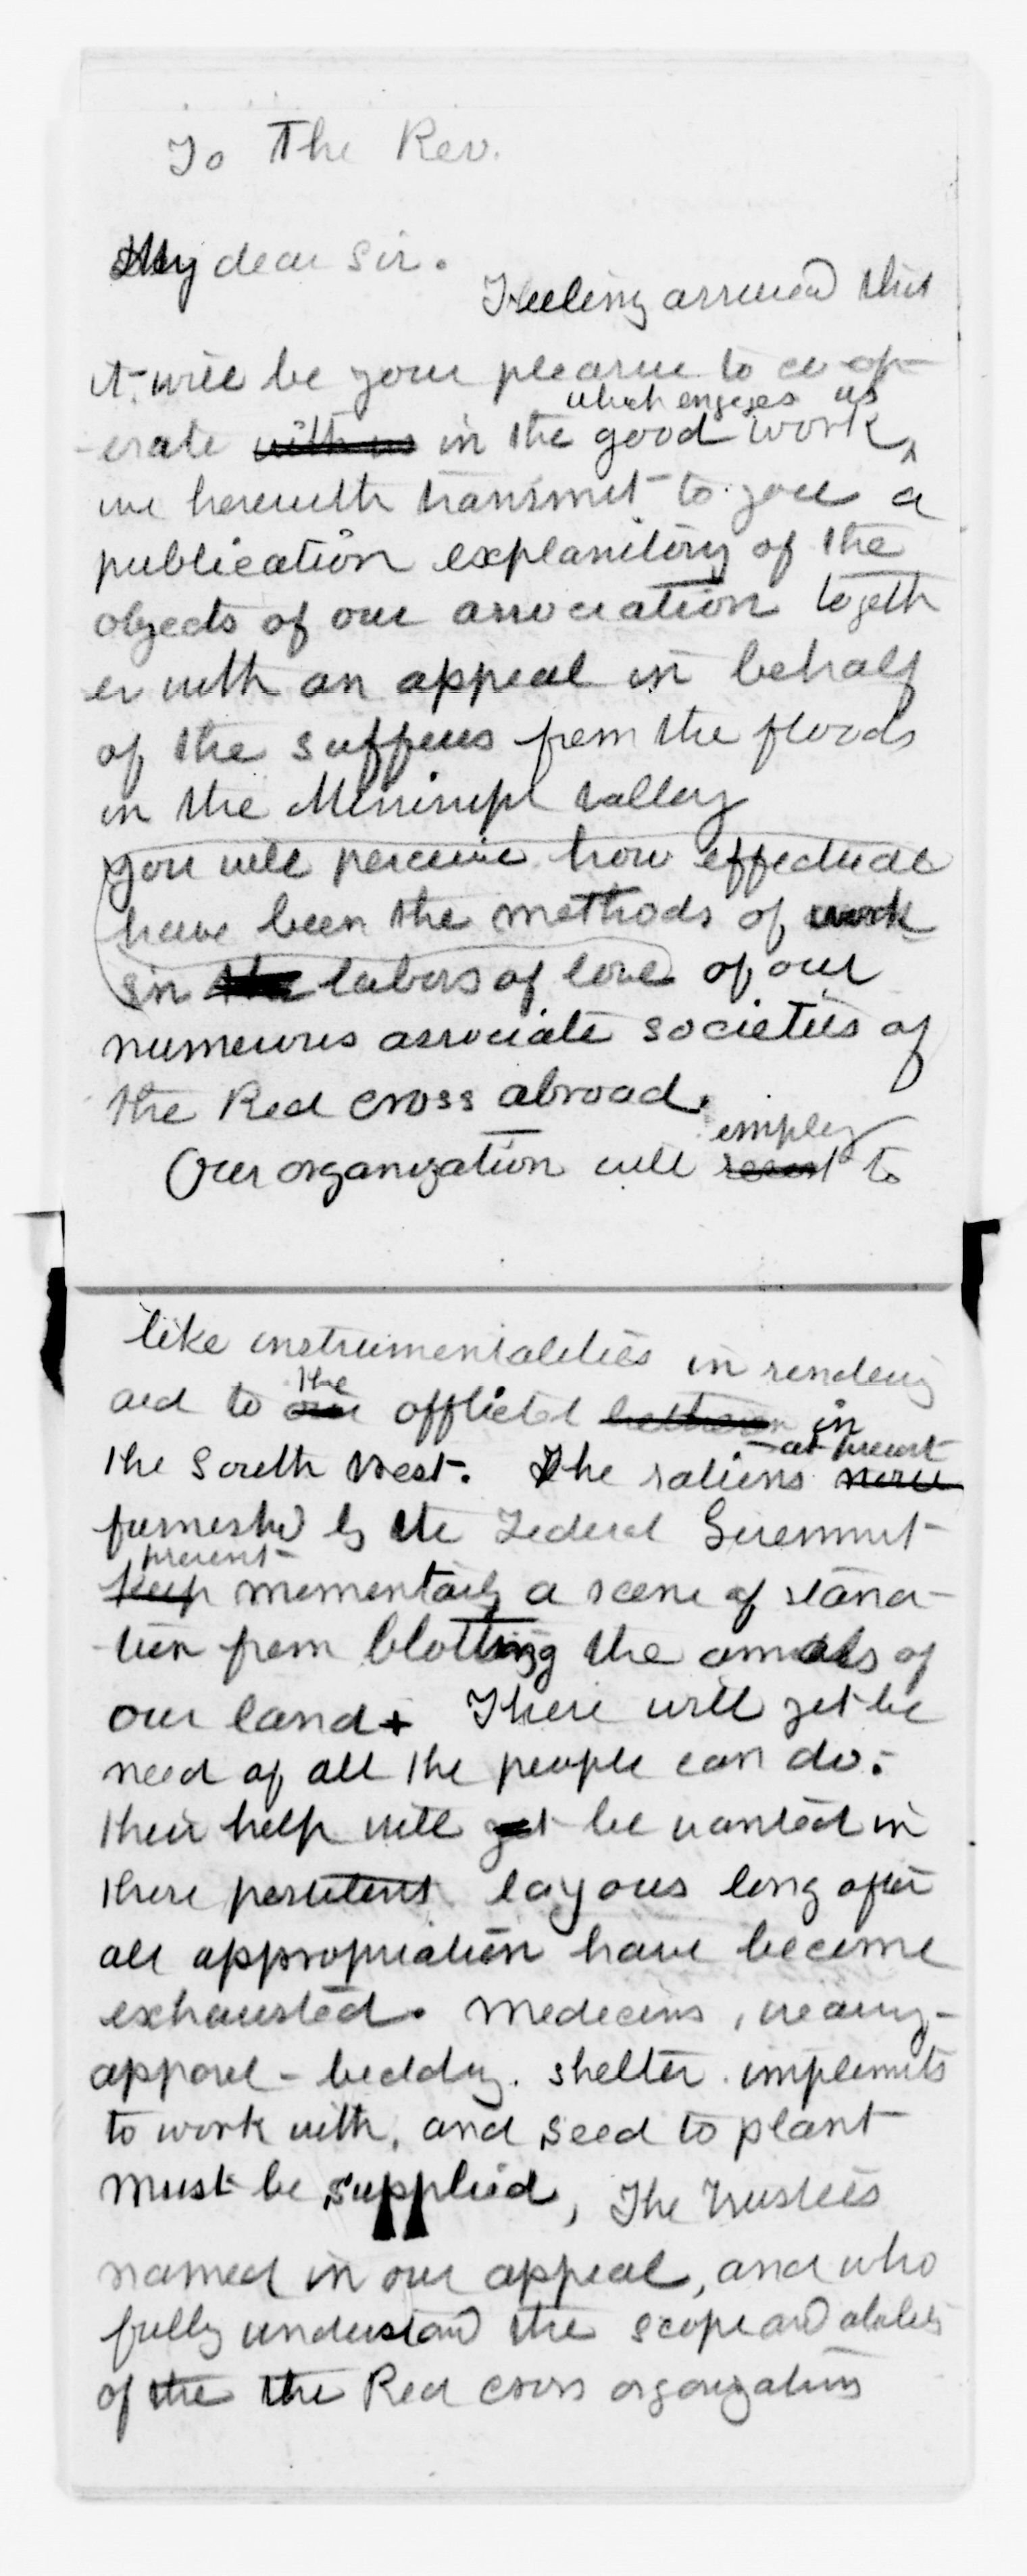 To The Rev.
My dear Sir.
Feeling assured that
it will be your pleasure to co-op
-erate with us in the good work which engages us
we herewith transmit to you a
publication explanitory of the
objects of our association togeth
er with an appeal in behalf
of the suffers from the floods
in the Mississippi valley
you will perceive how effectual
have been the methods of work
in the labors of love of our
numerous associate societies of
the Red Cross abroad.
Our organization will resort employ to
like instrumentalities in rendering
aid to our the afflicted bretheren in
the South West. The rations now at present
furnished by the Federal Government
keep prevent momentarily a scene of starva-
tion from blotting the annals of
our land + There will yet be
need of all the people can do.
their help will yet be wanted in
these pestilent bayous long after
all appropriation have become
exhausted. Medecins, wearing-
apparel - bedding. shelter. implements
to work with, and seed to plant
must be supplied, The Trustees
named in our appeal, and who
fully understand the scope and
of the the Red Cross organization